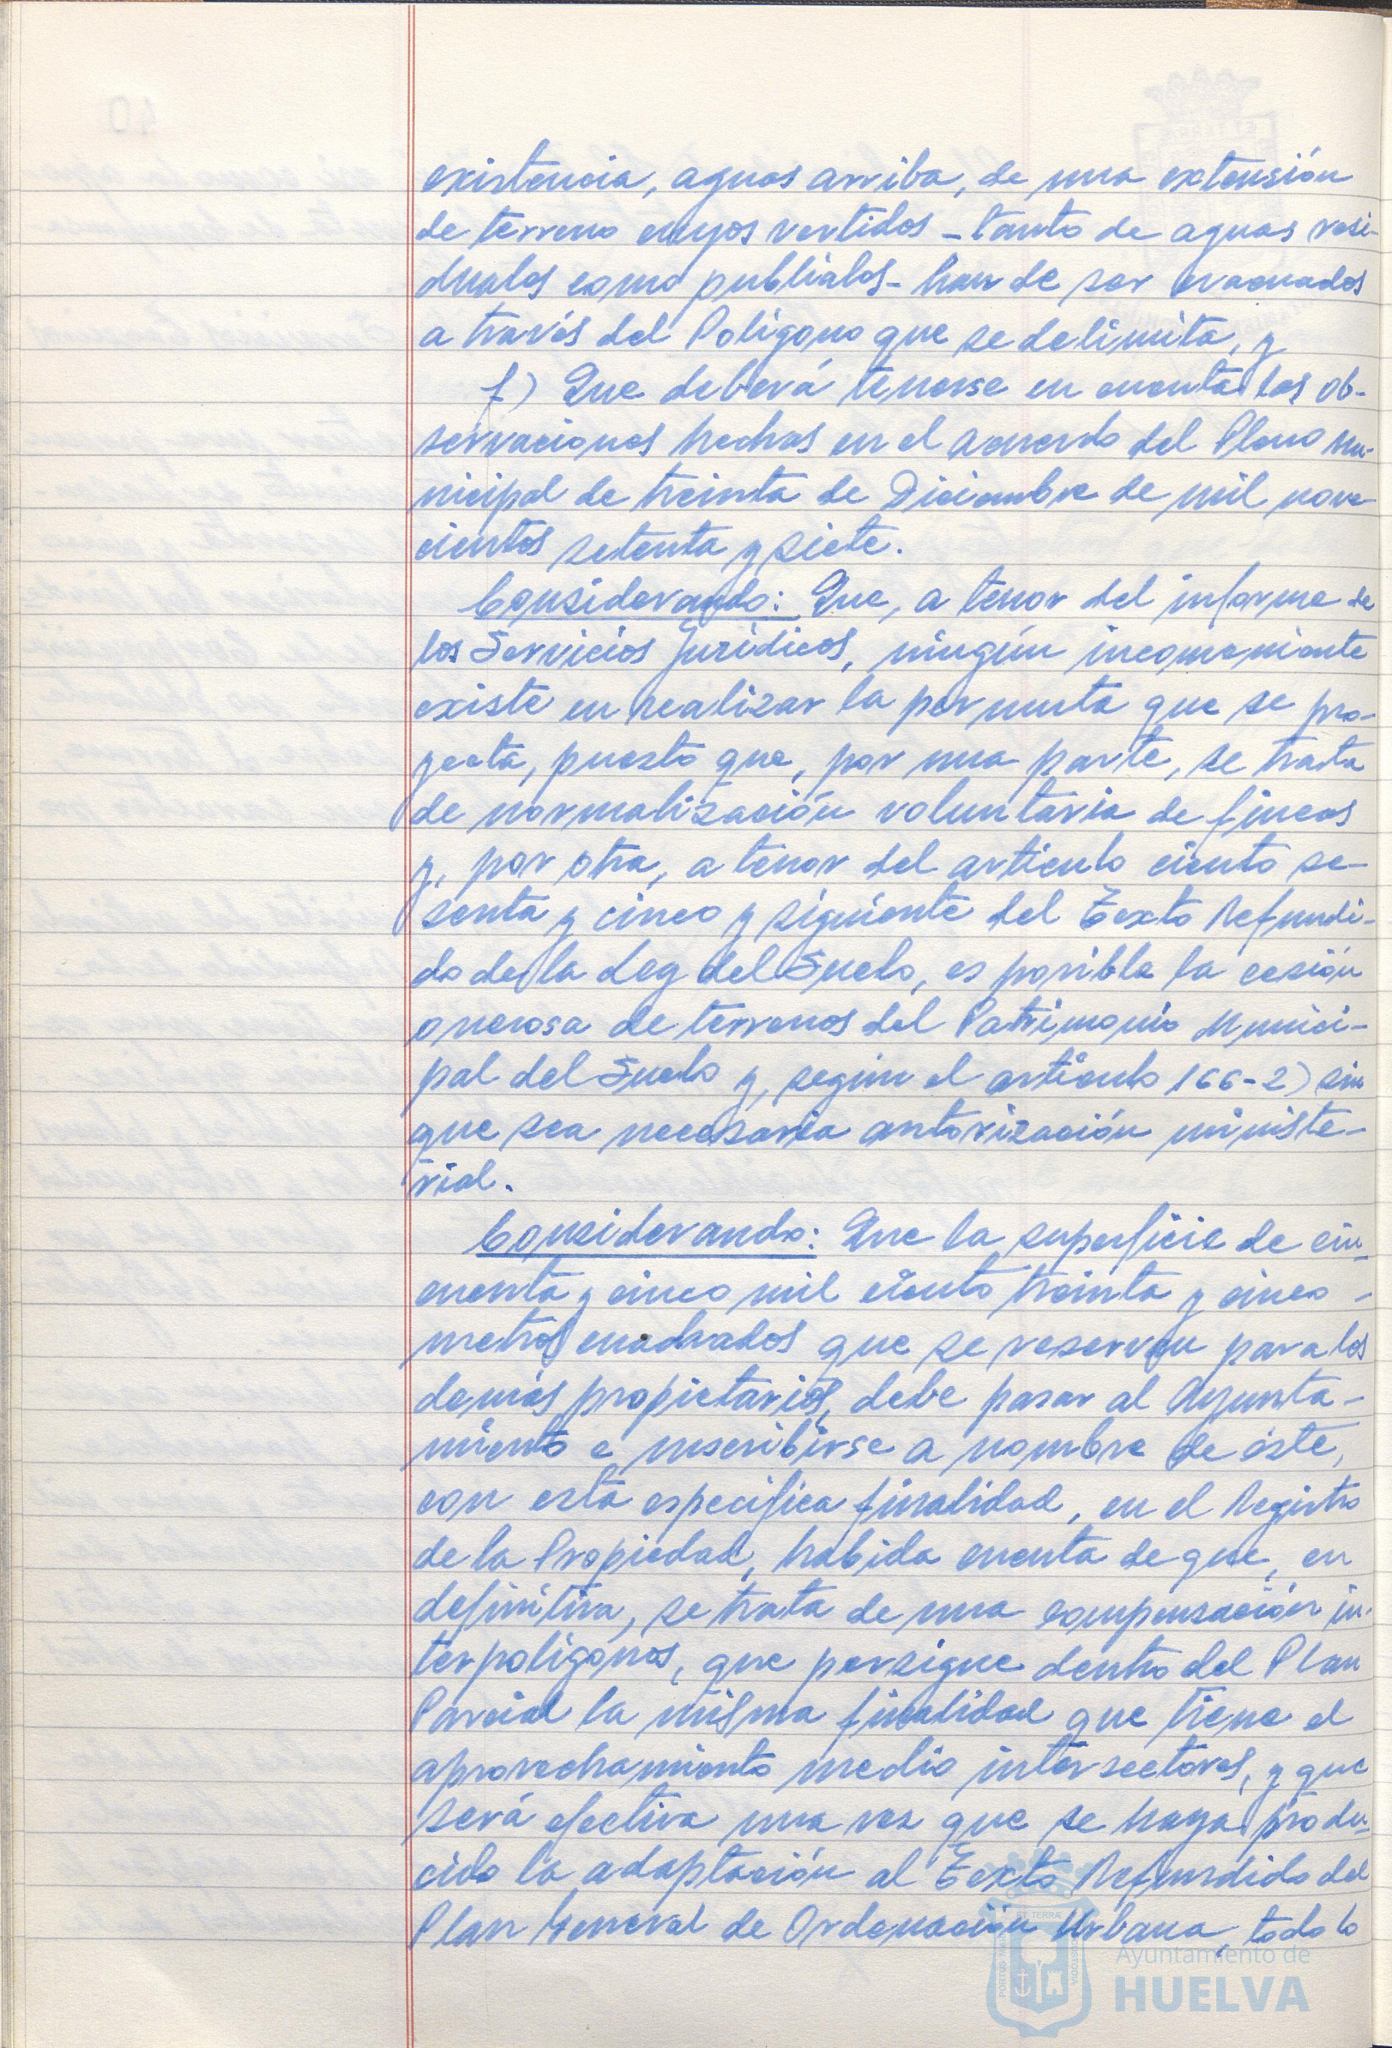 existencia, aguas arriba, de una extensión
de terreno cuyos vertidos - tanto de aguas resi-
duales como publiales - han de ser evacuados
a través del Polígono que se delimita, y
f) Que deberá tenerse en cuenta las ob-
servaciones hechas en el acuerdo del Pleno Mu-
nicipal de treinta de Diciembre de mil nove-
cientos setenta y siete.
Considerando: Que, a tenor del informe de
los Servicios Jurídicos, ningún inconveniente
existe en realizar la permuta que se pro-
yecta, puesto que, por una parte, se trata
de normalización voluntaria de fincas
y, por otra, a tenor del artículo ciento se-
senta y cinco y siguiente del Texto Refundi-
do de la Ley del Suelo, es posible la cesión
onerosa de terrenos del Patrimonio Munici-
pal del Suelo y, según el artículo 166-2) sin
que sea necesaria autorización ministe-
rial.
Considerando: Que la superficie de cin-
cuenta y cinco mil ciento treinta y cinco -
metros cuadrados que se reservan para los
demás propietarios, debe pasar al Ayunta-
miento e inscribirse a nombre de éste,
con esta específica finalidad, en el Registro
de la Propiedad, habida cuenta de que, en
definitiva, se trata de una compensación in-
terpolígonos, que persigue dentro del Plan
Parcial la misma finalidad que tiene el
aprovechamiento medio intersectores, y que
será efectiva una vez que se haya produ-
cido la adaptación al Texto Refundido del
Plan General de Ordenación Urbana, todo lo
Ayuntamiento de
HUELVA